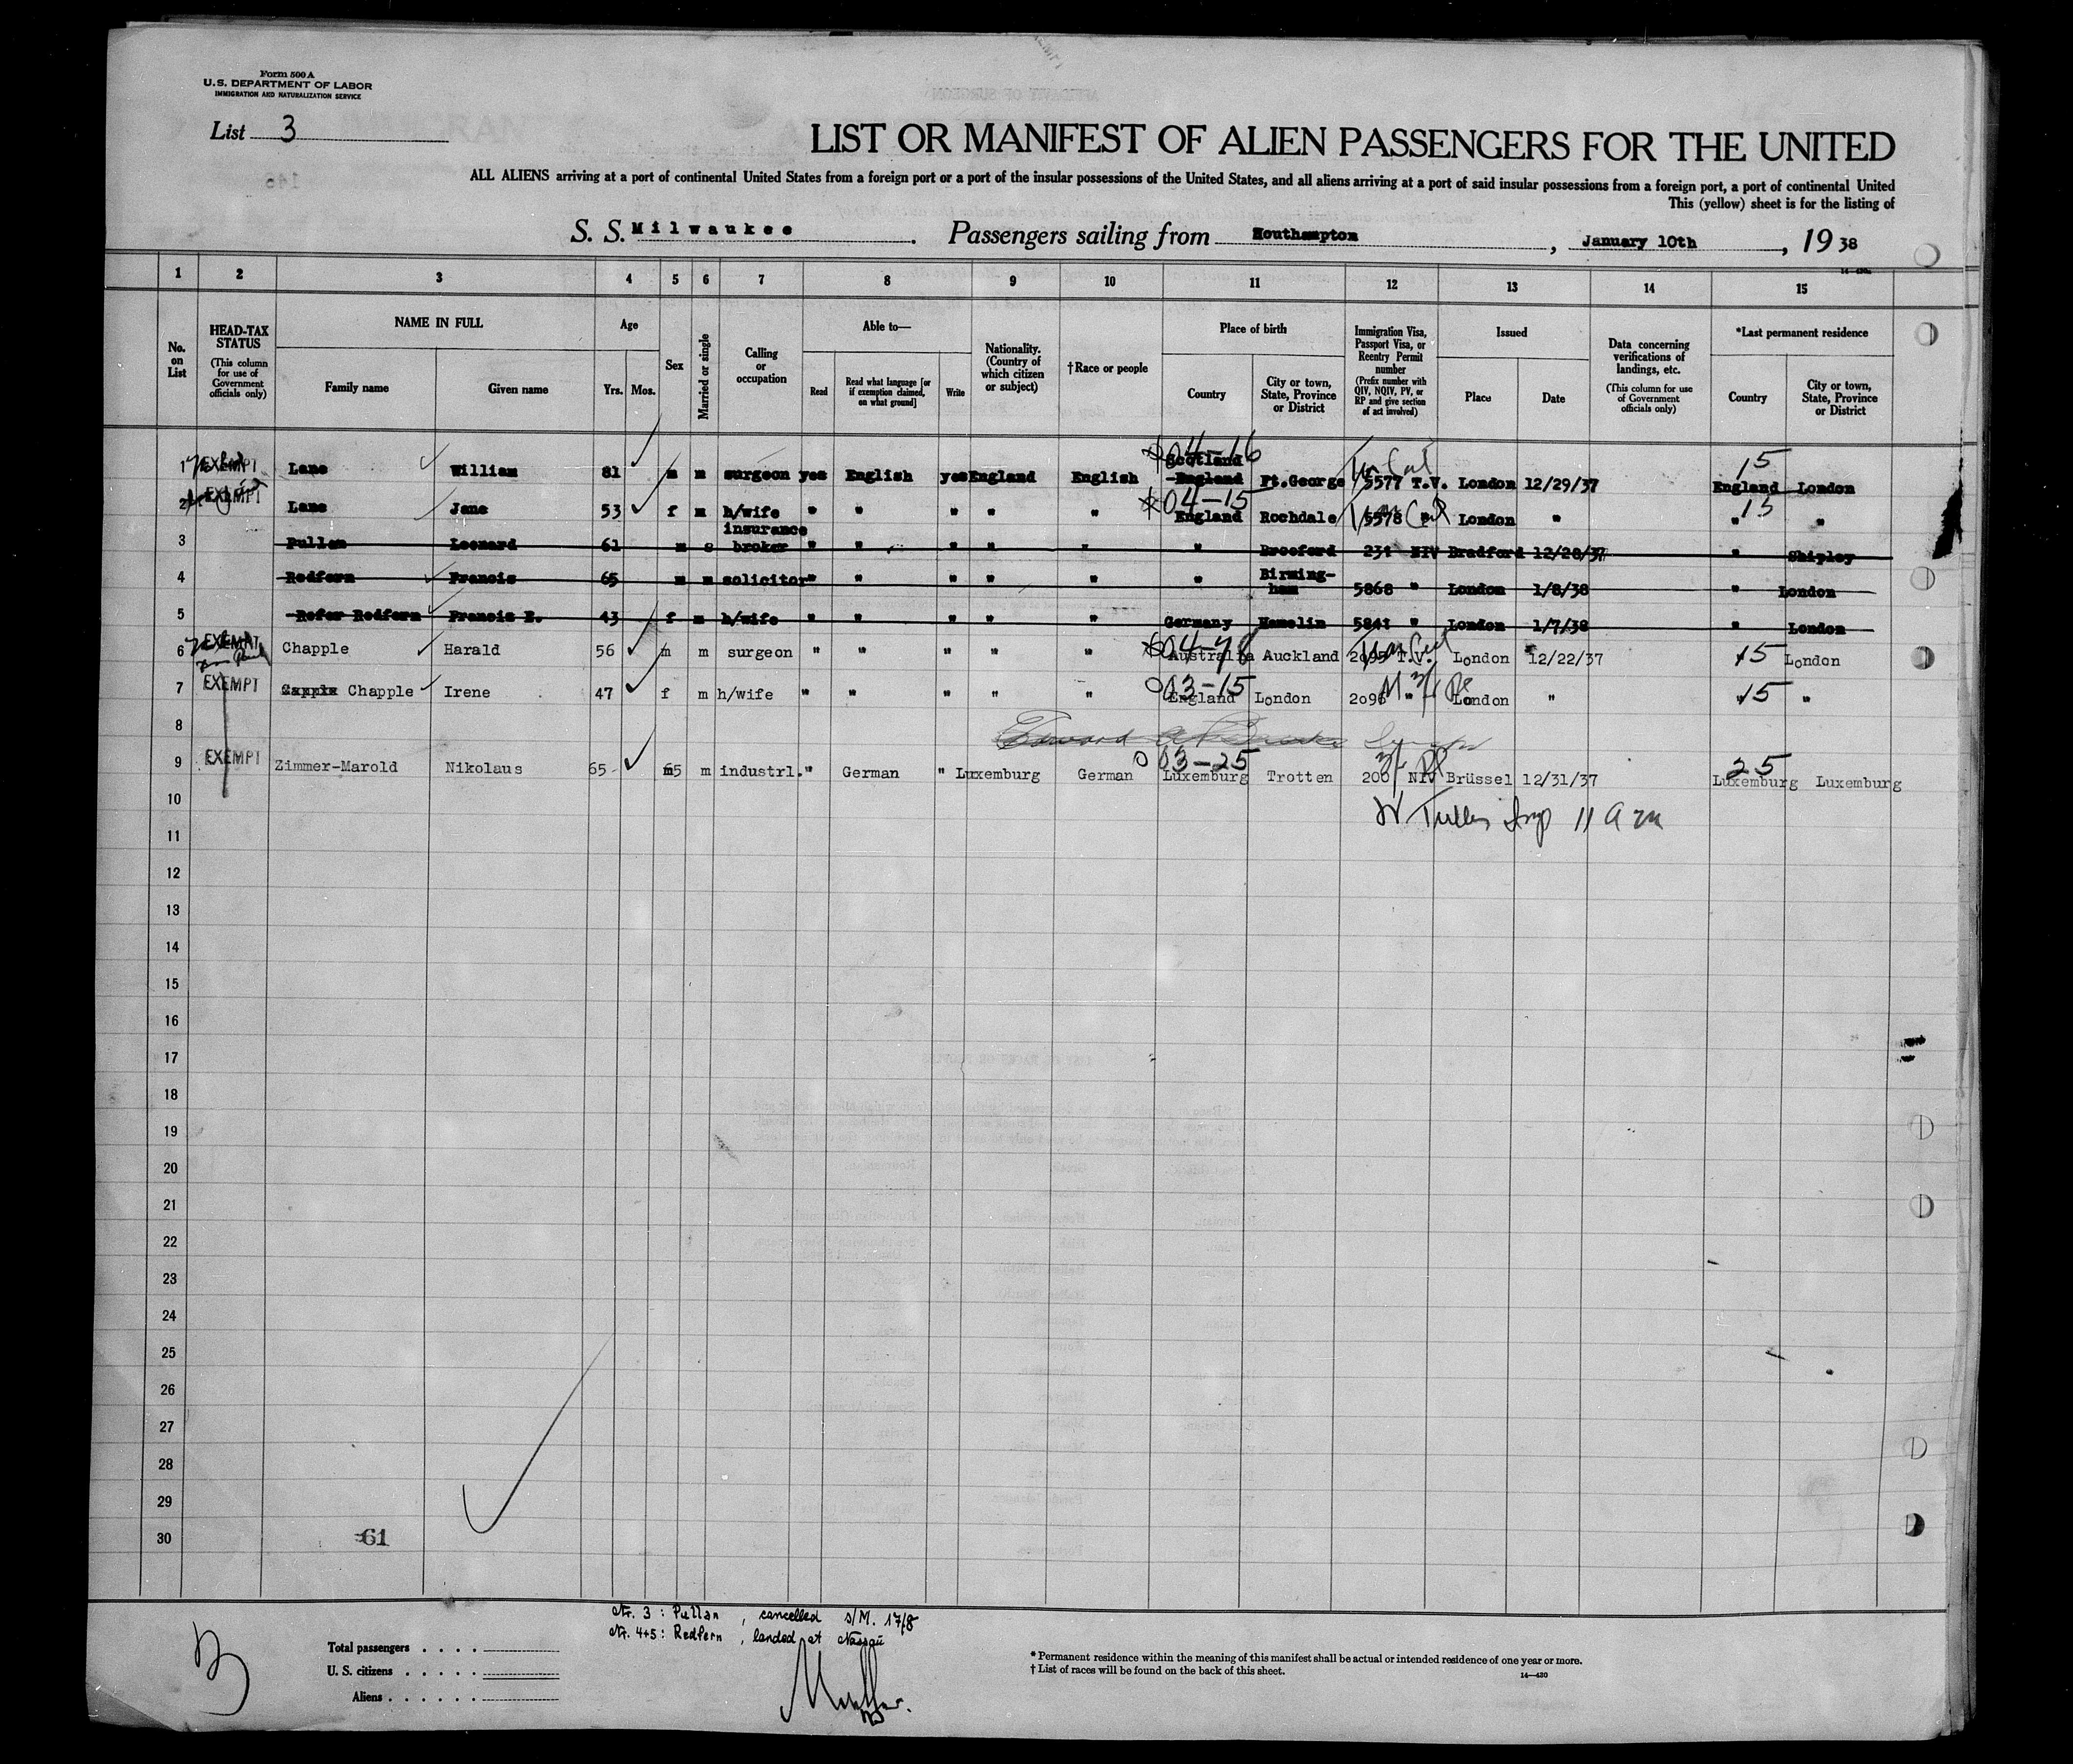 Form 500 A
U. S. DEPARTMENT OF LABOR
IMMIGRATION AND NATURALIZATION SERVICE
List 3
LIST OR MANIFEST OF ALIEN PASSENGERS FOR THE UNITED
ALL ALIENS arriving at a port of continental United States from a foreign port or a port of the insular possessions of the United States, and all aliens arriving at a port of said insular possessions from a foreign port, a port of continental United
This (yellow) sheet is for the listing of
S. S. Milwaukee. Passengers sailing from Southampton, January 10th, 19 38
1 2 3 4 5 6 7 8 9 10 11 12 13 14 15
No. on List
HEAD-TAX STATUS (This column for use of Government officials only)
NAME IN FULL
Family name
Given name
Age
Yrs. Mos.
Sex
Married or single
Calling or occupation
Able to—
Read
Read what language [or if exemption claimed, on what ground]
Write
Nationality. (Country of which citizen or subject)
†Race or people
Place of birth
Country
City or town, State, Province or District
Immigration Visa, Passport Visa, or Reentry Permit number (Prefix number with QIV, NQIV, PV, or RP and give section of act involved)
Issued
Place
Date
Data concerning verifications of landings, etc. (This column for use of Government officials only)
*Last permanent residence
Country
City or town, State, Province or District
04-16
1 EXEMPT Lane William 81 m m surgeon yes English yes England English Scotland England Ft.George 5577 T.V. London 12/29/37 15 England London
04-15
2 EXEMPT Lane Jane 53 f m h/wife " " " " " England Rochdale 5578 " London " 15 " "
3 Pullan Leonard 61 m s insurance broker " " " " " " 231 NIV Bradford 12/28/37 " Shipley
4 Redfern Francis 65 m m solicitor " " " " " " Birmingham 5868 " London 1/8/38 " London
5 Redfern Francis E. 43 f m h/wife " " " " " Germany Hamelin 5841 " London 1/7/38 " London
6 EXEMPT Chapple Harald 56 m m surgeon " " " " " 04-78 Australia Auckland 2095 T.V. London 12/22/37 15 London
7 EXEMPT Chapple Irene 47 f m h/wife " " " " " 03-15 England London 2096 " London " 15 "
8
9 EXEMPT Zimmer-Marold Nikolaus 65 m m industrl. " German " Luxemburg German 03-25 Luxemburg Trotten 200 NIV Brüssel 12/31/37 25 Luxemburg Luxemburg
10
11
12
13
14
15
16
17
18
19
20
21
22
23
24
25
26
27
28
29
30
61
Nr. 3 : Pullan, cancelled s/M. 17/8
Nr. 4+5 : Redfern, landed at Nassau
Total passengers
U. S. citizens
Aliens
* Permanent residence within the meaning of this manifest shall be actual or intended residence of one year or more.
† List of races will be found on the back of this sheet.
14—430